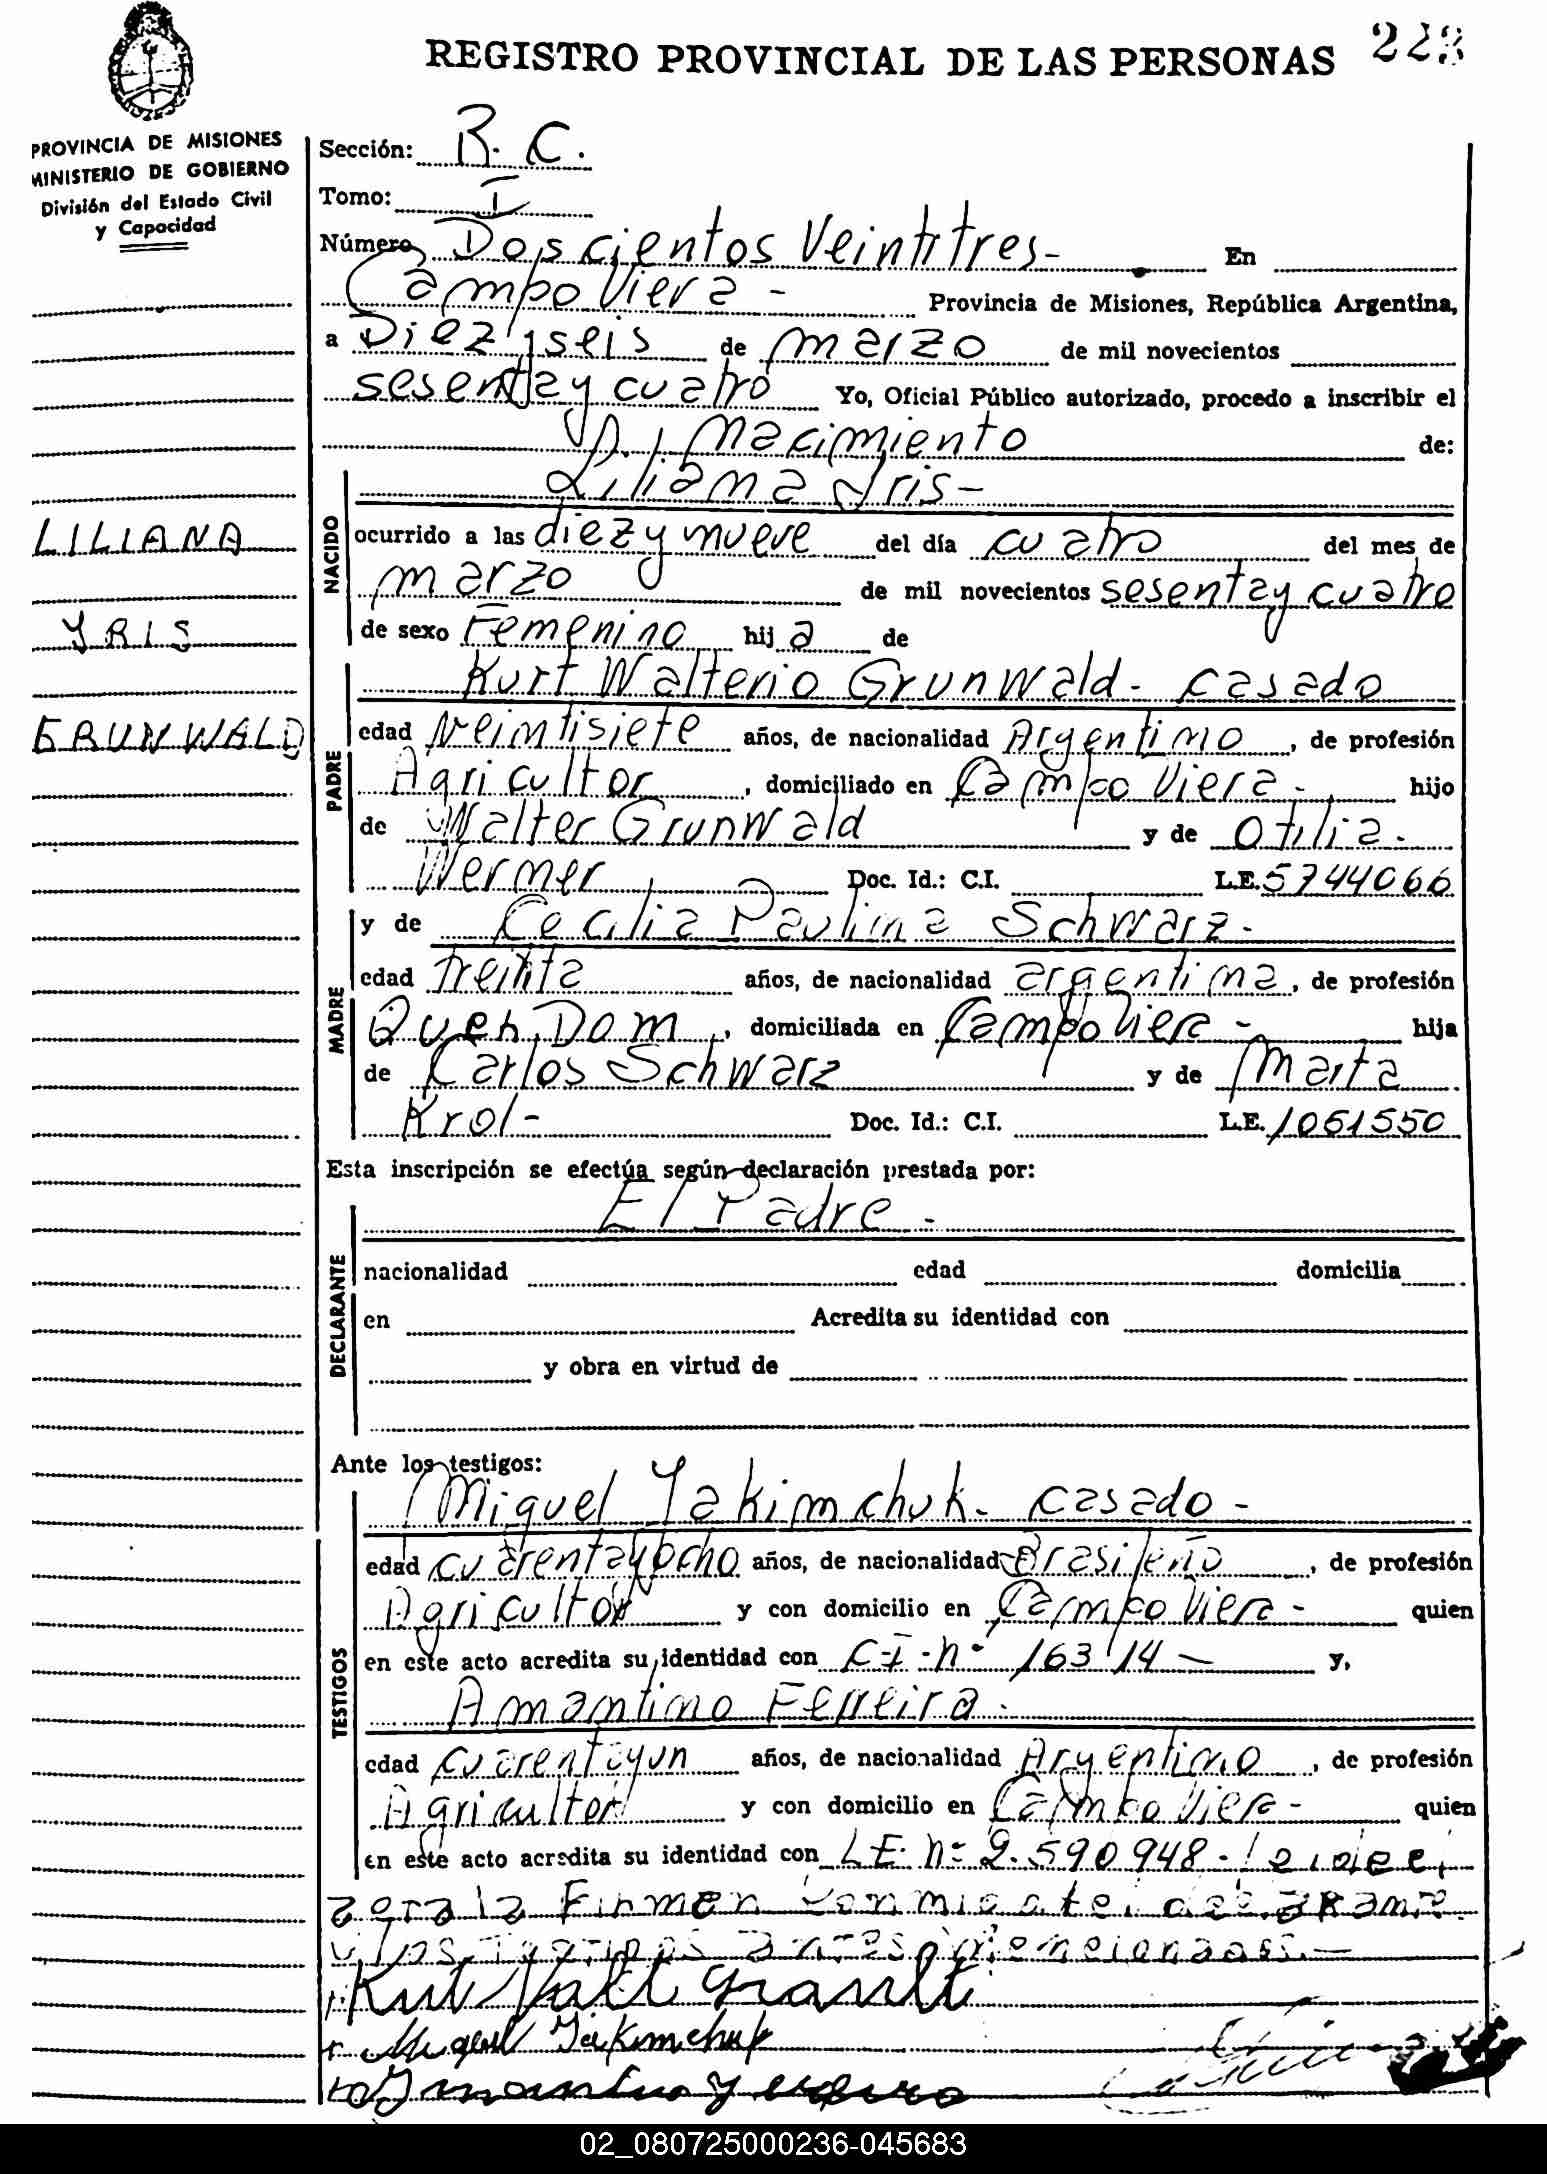 REGISTRO PROVINCIAL DE LAS PERSONAS 223
PROVINCIA DE MISIONES
MINISTERIO DE GOBIERNO
División del Estado Civil
y Capacidad
Sección: R. C.
Tomo: I
Número Doscientos Veintitres- En
Campo Viera - Provincia de Misiones, República Argentina,
a Diez y seis de marzo de mil novecientos
sesenta y cuatro Yo, Oficial Público autorizado, procedo a inscribir el
Nacimiento de:
Liliana Iris-
LILIANA
YRIS
GRUNWALD
NACIDO
ocurrido a las diez y nueve del día cuatro del mes de
marzo de mil novecientos sesenta y cuatro
de sexo Femenino hija de
PADRE
Kurt Walterio Grunwald- casado
edad Veintisiete años, de nacionalidad Argentino, de profesión
Agricultor, domiciliado en Campo Viera- hijo
de Walter Grunwald y de Otilia-
Werner Doc. Id.: C.I. L.E. 5744066
MADRE
y de Cecilia Paulina Schwarz-
edad treinta años, de nacionalidad argentina, de profesión
Queh. Dom, domiciliada en Campo Viera- hija
de Carlos Schwarz y de Marta
Krol- Doc. Id.: C.I. L.E. 1061550
Esta inscripción se efectúa según declaración prestada por:
DECLARANTE
El Padre-
nacionalidad edad domicilia
en Acredita su identidad con
y obra en virtud de
Ante los testigos:
TESTIGOS
Miguel Yakimchuk- casado-
edad cuarenta y ocho años, de nacionalidad Brasileño, de profesión
Agricultor y con domicilio en Campo Viera- quien
en este acto acredita su identidad con C-I-nº 16314- y,
Amantino Ferreira-
edad cuarenta y un años, de nacionalidad Argentino, de profesión
Agricultor y con domicilio en Campo Viera- quien
en este acto acredita su identidad con L.E. nº 2.590948- leida el
acta la Firman conmigo
y los testigos antes mencionados.-
Kurt Walt Grunwald
Miguel Yakimchuk
Amantino Ferreira
02_080725000236-045683